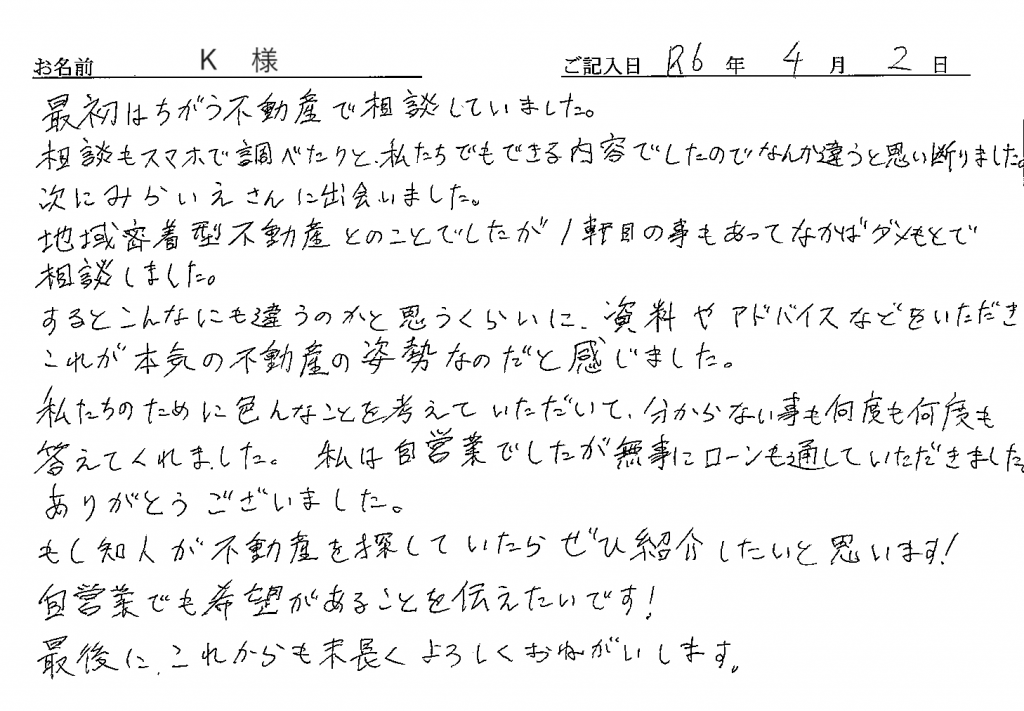 お名前 K 様 ご記入日 R6 年 4 月 2 日
最初はちがう不動産で相談していました。
相談もスマホで調べたりと、私たちでもできる内容でしたのでなんか違うと思い断りました。
次にみらいえさんに出会いました。
地域密着型不動産とのことでしたが1軒目の事もあってなかばダメもとで
相談しました。
するとこんなにも違うのかと思うくらいに、資料やアドバイスなどをいただき
これが本気の不動産の姿勢なのだと感じました。
私たちのために色んなことを考えていただいて、分からない事も何度も何度も
答えてくれました。私は自営業でしたが無事にローンも通していただきました
ありがとうございました。
もし知人が不動産を探していたらぜひ紹介したいと思います!
自営業でも希望があることを伝えたいです!
最後に、これからも末長くよろしくおねがいします。